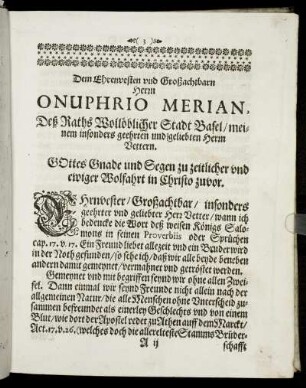 ( 3 )
Dem Ehrenvesten vnd Großachtbarn
Herrn
ONUPHRIO MERIAN,
Deß Raths Wollöblicher Stadt Basel/ mei-
nem insonders geehrten und geliebten Herrn
Vettern.
GOttes Gnade und Segen zu zeitlicher vnd
ewiger Wolfahrt in Christo zuvor.
EHrnvester/ Großachtbar/ insonders
geehrter vnd geliebter Herr Vetter/ wann ich
bedencke die Wort deß weisen Königs Salo-
mons in seinen Proverbiis oder Sprüchen
cap. 17. v. 17. Ein Freund liebet allezeit vnd ein Bruder wird
in der Noth gefunden/ so sehe ich/ daß wir alle beyde beneben
andern damit gemeynet/ vermahnet vnd getröstet werden.
Gemeynet vnd mit begriffen seynd wir ohne allen Zwei-
fel. Dann einmal wir seynd Freunde nicht allein nach der
allgemeinen Natur/ die alle Menschen ohne Vnterscheid zu-
sammen befreundet als einerley Geschlechts vnd von einem
Blut/ wie dort der Apostel redet zu Athen auff dem Marckt/
Act. 17. v. 26. (welches doch die allerelteste Stamms Brüder-
A ij
schafft